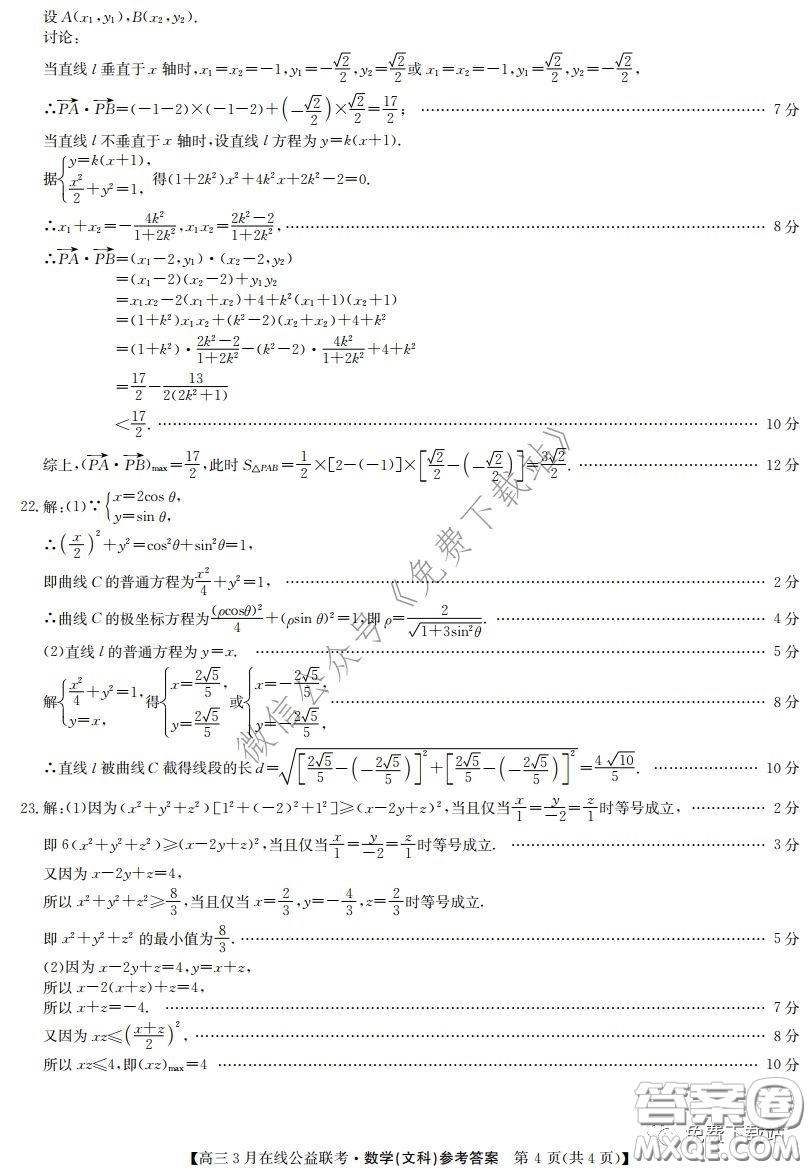 设 A(x₁,y₁),B(x₂,y₂).
讨论:
当直线 l 垂直于 x 轴时,x₁=x₂=-1,y₁=-√2/2,y₂=√2/2 或 x₁=x₂=-1,y₁=√2/2,y₂=-√2/2,
∴PA→·PB→=(-1-2)×(-1-2)+(-√2/2)×√2/2=17/2; …… 7 分
当直线 l 不垂直于 x 轴时,设直线 l 方程为 y=k(x+1).
据{y=k(x+1), x²/2+y²=1, 得(1+2k²)x²+4k²x+2k²-2=0.
∴x₁+x₂=-4k²/(1+2k²),x₁x₂=(2k²-2)/(1+2k²), …… 8 分
∴PA→·PB→=(x₁-2,y₁)·(x₂-2,y₂)
=(x₁-2)(x₂-2)+y₁y₂
=x₁x₂-2(x₁+x₂)+4+k²(x₁+1)(x₂+1)
=(1+k²)x₁x₂+(k²-2)(x₂+x₂)+4+k²
=(1+k²)·(2k²-2)/(1+2k²)-(k²-2)·4k²/(1+2k²)+4+k²
=17/2-13/(2(2k²+1))
<17/2. …… 10 分
综上,(PA→·PB→)max=17/2,此时 S△PAB=1/2×[2-(-1)]×[√2/2-(-√2/2)]=3√2/2. …… 12 分
22.解:(1)∵{x=2cos θ, y=sin θ,
∴(x/2)²+y²=cos²θ+sin²θ=1,
即曲线 C 的普通方程为x²/4+y²=1, …… 2 分
∴曲线 C 的极坐标方程为(ρcosθ)²/4+(ρsin θ)²=1,即 ρ=2/√(1+3sin²θ). …… 4 分
(2)直线 l 的普通方程为 y=x. …… 5 分
解{x²/4+y²=1, y=x, 得{x=2√5/5, y=2√5/5 或{x=-2√5/5, y=-2√5/5, …… 8 分
∴直线 l 被曲线 C 截得线段的长 d=√([2√5/5-(-2√5/5)]²+[2√5/5-(-2√5/5)]²)=4√10/5. …… 10 分
23.解:(1)因为(x²+y²+z²)[1²+(-2)²+1²]≥(x-2y+z)²,当且仅当x/1=y/-2=z/1时等号成立, …… 2 分
即 6(x²+y²+z²)≥(x-2y+z)²,当且仅当x/1=y/-2=z/1时等号成立. …… 3 分
又因为 x-2y+z=4,
所以 x²+y²+z²≥8/3,当且仅当 x=2/3,y=-4/3,z=2/3时等号成立.
即 x²+y²+z² 的最小值为8/3. …… 5 分
(2)因为 x-2y+z=4,y=x+z,
所以 x-2(x+z)+z=4,
所以 x+z=-4. …… 7 分
又因为 xz≤((x+z)/2)², …… 8 分
所以 xz≤4,即(xz)max=4 …… 10 分
微信公众号《免费下载站》
答案圈
免费下载站
MXQE.COM
【高三 3 月在线公益联考·数学(文科)参考答案 第 4 页(共 4 页)】